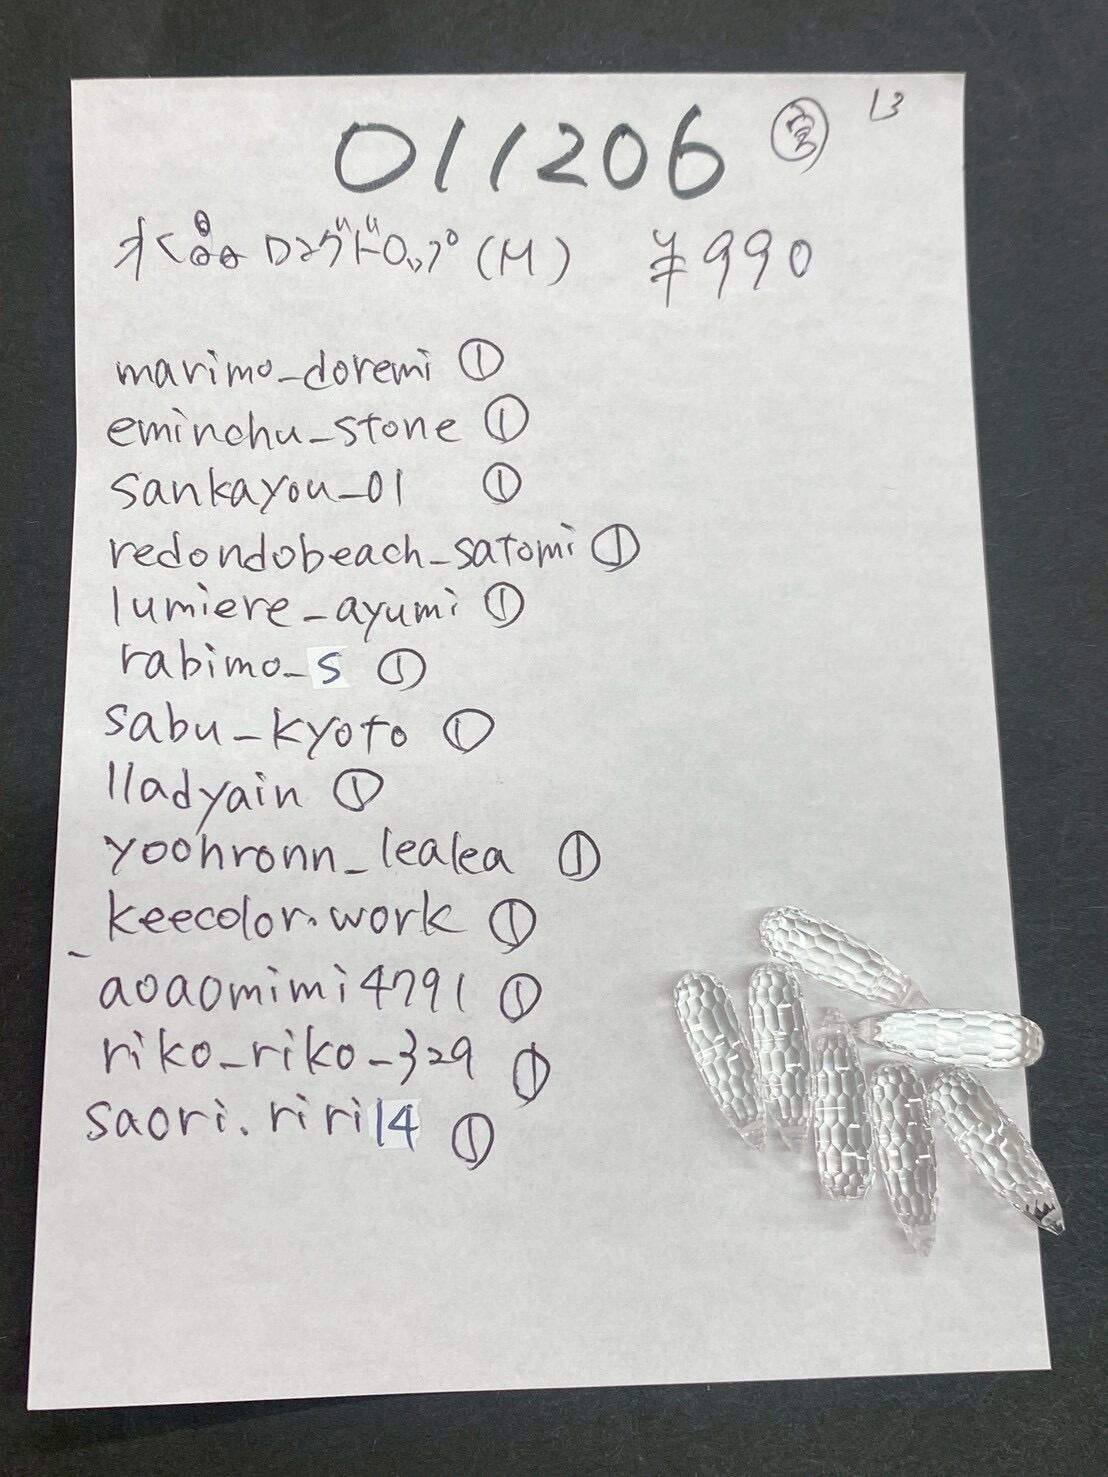 13
011206 宮
水晶ロングドロップ(M) ¥990
marimo_doremi ①
eminchu_stone ①
sankayou_01 ①
redondobeach_satomi ①
lumiere_ayumi ①
rabimo_s ①
sabu_kyoto ①
lladyain ①
yoohronn_lealea ①
keecolor.work ①
aoaomimi4791 ①
riko_riko_329 ①
saori.riri14 ①